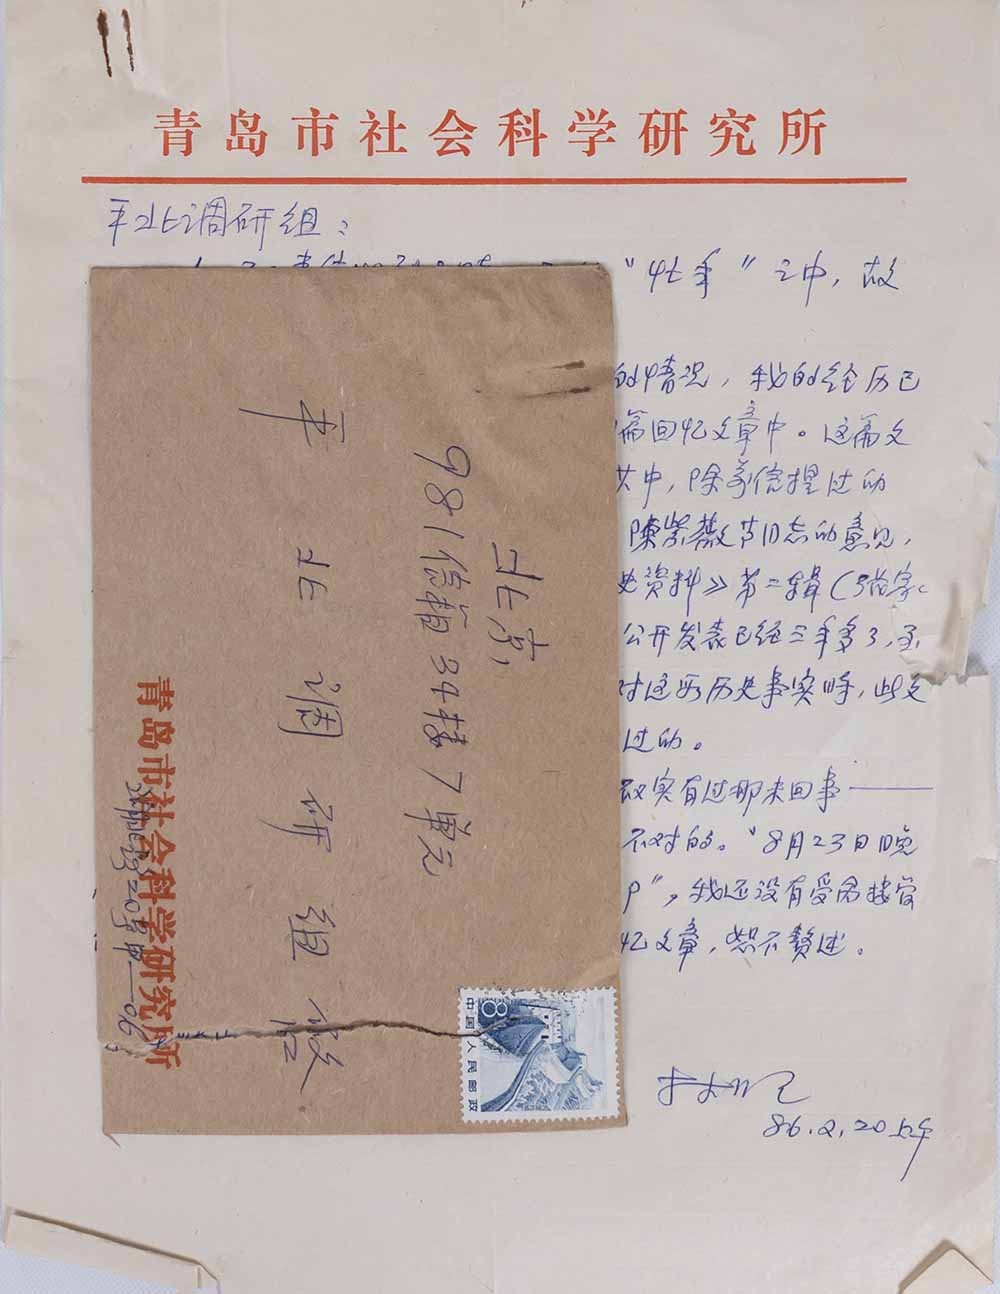 青岛市社会科学研究所
平北调研组：
"忙季"之中，故
的情况，我的经历已
篇回忆文章中。这篇文
其中，除
陈紫薇等同志的意见，
史资料》第二辑（
公开发表已经三年多了，至
对这段历史事实时，此文
过的。
确实有过那末回事——
不对的。"8月23日晚
"，我还没有受命接管
忆文章，恕不赘述。
86.2.20上午
北京
981信箱34楼7单元
平北调研组收
青岛市社会科学研究所
20号甲—06
8
中国人民邮政